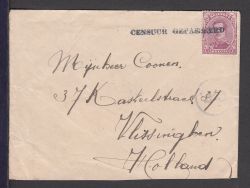 CENSUUR GEPASSEERD
Mijnheer Coonen.
37 Kasteelstraat 87
Vlissinghen
Holland